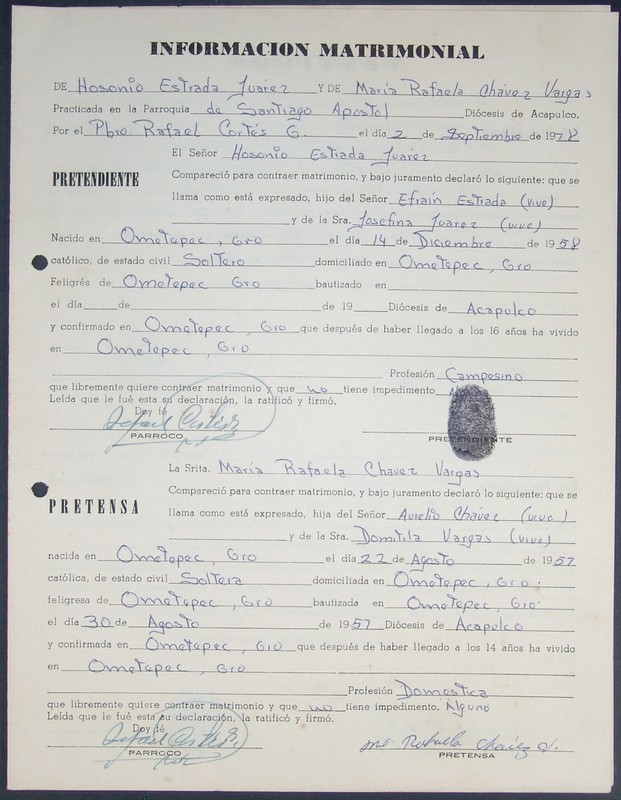 INFORMACION MATRIMONIAL
DE Hosonio Estrada Juarez Y DE María Rafaela Chávez Vargas
Practicada en la Parroquia de Santiago Apostol Diócesis de Acapulco.
Por el Pbro Rafael Cortés G. el día 2 de Septiembre de 1978
El Señor Hosonio Estrada Juarez
PRETENDIENTE
Compareció para contraer matrimonio, y bajo juramento declaró lo siguiente: que se
llama como está expresado, hijo del Señor Efraín Estrada (vive)
y de la Sra. Josefina Juarez (vive)
Nacido en Ometepec, Gro el día 14 de Diciembre de 1958
católico, de estado civil Soltero domiciliado en Ometepec, Gro
Feligrés de Ometepec Gro bautizado en
el día de de 19 Diócesis de Acapulco
y confirmado en Ometepec, Gro que después de haber llegado a los 16 años ha vivido
en Ometepec, Gro
Profesión Campesino
que libremente quiere contraer matrimonio y que no tiene impedimento
Leída que le fué esta su declaración, la ratificó y firmó.
Doy fé
PARROCO PRETENDIENTE
La Srita. María Rafaela Chavez Vargas
PRETENSA
Compareció para contraer matrimonio, y bajo juramento declaró lo siguiente: que se
llama como está expresado, hija del Señor Aurelio Chávez (vive)
y de la Sra. Domitila Vargas (vive)
nacida en Ometepec, Gro el día 22 de Agosto de 1957
católica, de estado civil Soltera domiciliada en Ometepec, Gro.
feligresa de Ometepec, Gro bautizada en Ometepec, Gro.
el día 30 de Agosto de 1957 Diócesis de Acapulco
y confirmada en Ometepec, Gro que después de haber llegado a los 14 años ha vivido
en Ometepec, Gro
Profesión Domestica
que libremente quiere contraer matrimonio y que no tiene impedimento. Alguno
Leída que le fué esta su declaración, la ratificó y firmó.
Doy fé
Ma Rafaela Chávez V.
PARROCO PRETENSA